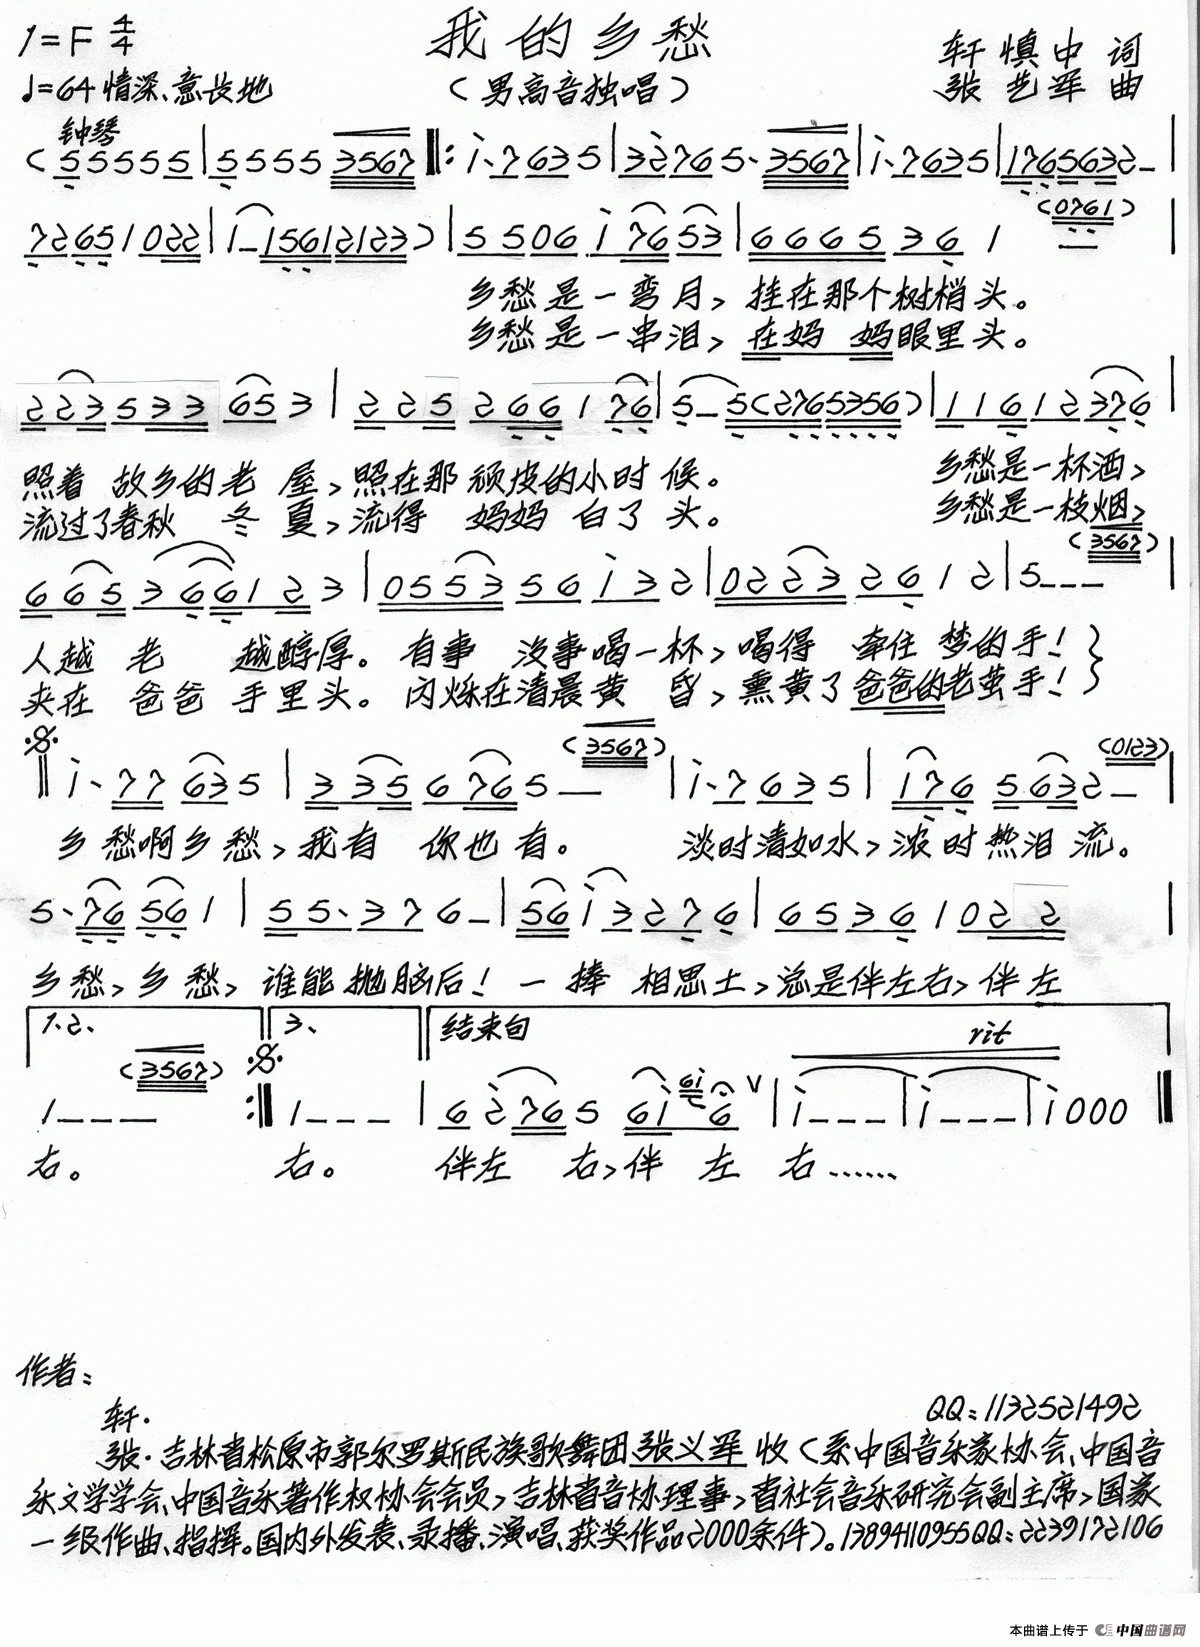 我的乡愁
1=F 4/4
♩=64 情深、意长地
（男高音独唱）
轩慎中 词
张艺军 曲
钟琴
(5 5 5 5 5 | 5 5 5 5 3567 ‖: i· 7 6 3 5 | 3 2 7 6 5· 3567 | i· 7 6 3 5 | 1 7 6 5 6 3 2 –
(0761)
7 2 6 5 1 0 2 2 | i – 1 5 6 1 2 1 2 3) | 5 5 0 6 i 7 6 5 3 | 6 6 6 5 3 6 1 –
乡愁是一弯月，挂在那个树梢头。
乡愁是一串泪，在妈 妈眼里头。
2 2 3 5 3 3 6 5 3 | 2 2 5 2 6 6 1 7 6 | 5 – 5 (2 7 6 5 3 5 6) | 1 1 6 1 2 3 7 6
照着 故乡的老 屋，照在那 顽皮的小时 候。 乡愁是一杯酒，
流过了春秋 冬 夏，流得 妈妈 白了 头。 乡愁是一枝烟，
(3567)
6 6 5 3 6 6 1 2 3 | 0 5 5 3 5 6 i 3 2 | 0 2 2 3 2 6 1 2 | 5 – – –
人越 老 越醇厚。有事 没事喝一杯，喝得 牵住 梦的手！
夹在 爸爸 手里头。闪烁在清晨黄 昏，熏黄了爸爸的老茧手！
(3567) (0123)
‖ i· 7 7 6 3 5 | 3 3 5 6 7 6 5 – | i· 7 6 3 5 | 1 7 6 5 6 3 2 –
乡愁啊乡愁，我有 你也有。 淡时清如水，浓时热泪流。
5· 7 6 5 6 1 | 5 5· 3 7 6 – | 5 6 i 3 2 7 6 | 6 5 3 6 1 0 2 2
乡愁，乡愁，谁能抛脑后！一捧 相思土，总是伴左右，伴左
1、2、 3、 结束句 rit
(3567)
1 – – – :‖ 1 – – – | 6 2 7 6 5 6 i 6i 6 | i – – – | i – – – | i 0 0 0 ‖
右。 右。 伴左 右，伴 左 右……
作者：
轩· QQ：1132521492
张·吉林省松原市郭尔罗斯民族歌舞团张义军 收（系中国音乐家协会、中国音
乐文学学会、中国音乐著作权协会会员，吉林省音协理事，省社会音乐研究会副主席，国家
一级作曲、指挥。国内外发表、录播、演唱、获奖作品2000余件）。13894110955QQ：2239172106
本曲谱上传于 中国曲谱网